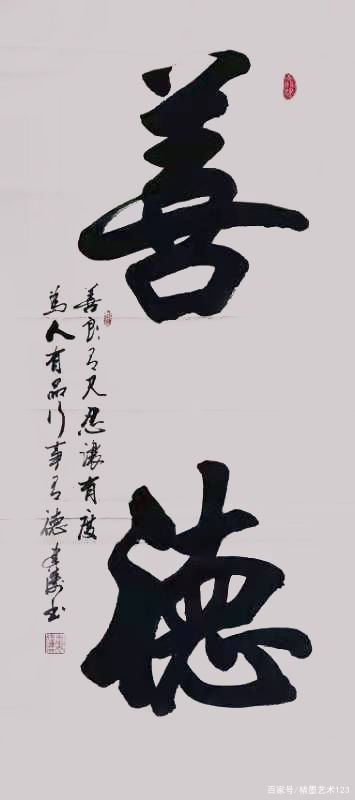 善德
善良有尺忍讓有度
為人有品行事有德
书
百家号/精墨艺术123